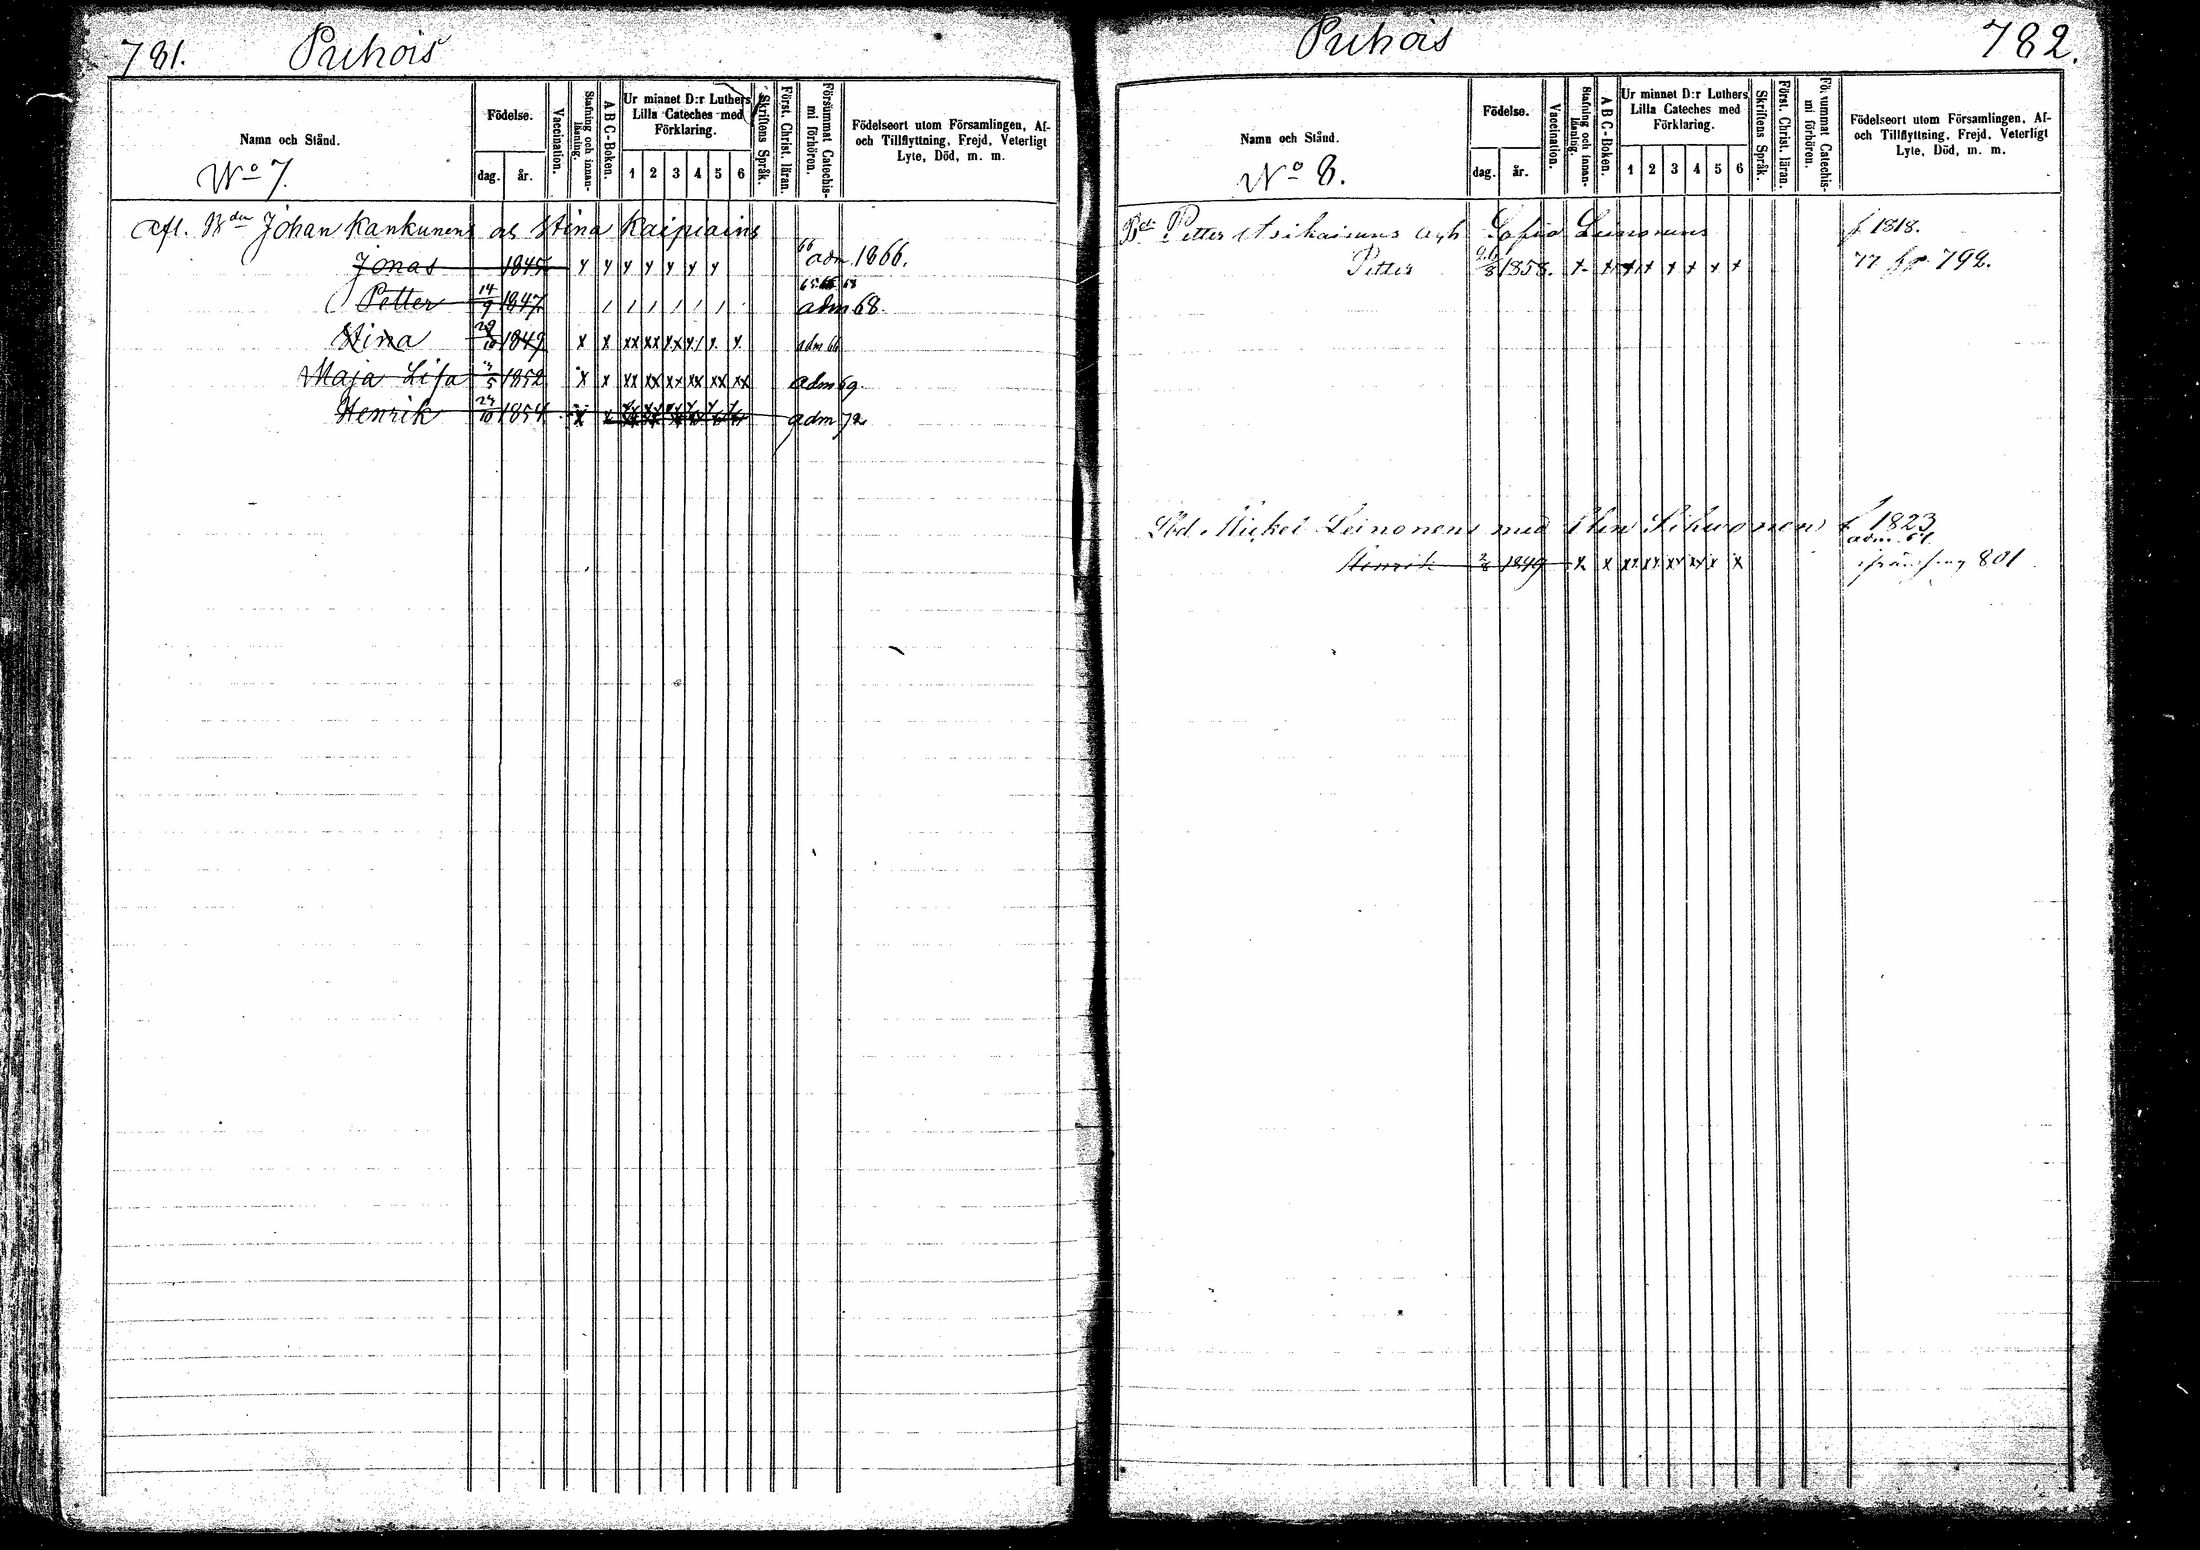 781. Puhois
Namn och Stånd.
No 7.
Födelse.
dag. år.
Vaccination.
Stafning och innanläsning.
A B C-Boken.
Ur minnet D:r Luthers Lilla Cateches med Förklaring.
1 2 3 4 5 6
Skriftens Språk.
Först. Christ. läran.
Försummat Catechismi förhören.
Födelseort utom Församlingen, Af- och Tillflyttning, Frejd, Veterligt Lyte, Död, m. m.
Afl. Johan Kankunens och Stina Kaipiains
Jonas 1845 y y y y y y y 66 adm. 1866.
Petter 14/9 1847 / / / / / / adm 68.
Stina 1849 x x xx xx xx x/ x x adm 66
Maja Lisa 1852 x x xx xx xx xx xx xx adm 69.
Henrik 24/10 1854 x x adm 72
Puhois 782.
Namn och Stånd.
No 8.
Födelse.
dag. år.
Vaccination.
Stafning och innanläsning.
A B C-Boken.
Ur minnet D:r Luthers Lilla Cateches med Förklaring.
1 2 3 4 5 6
Skriftens Språk.
Först. Christ. läran.
Fö. ummat Catechismi förhören.
Födelseort utom Församlingen, Af- och Tillflyttning, Frejd, Veterligt Lyte, Död, m. m.
Petter Sofia Leinonens f 1818.
Petter 26/8 1858. x x x x x x x x 77 792.
Mickel Leinonens med Sihwonen f 1823
adm.
Henrik 1849 x x xx xx xx xx x x 801